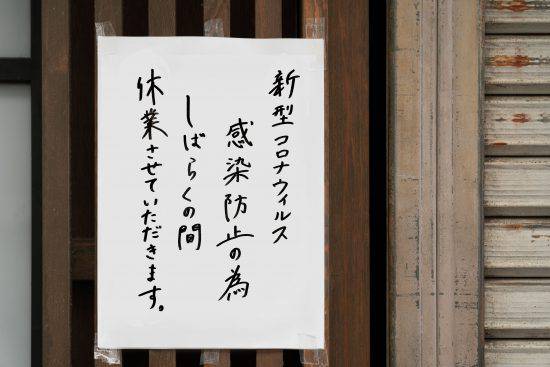 新型コロナウィルス
感染防止の為
しばらくの間
休業させていただきます。